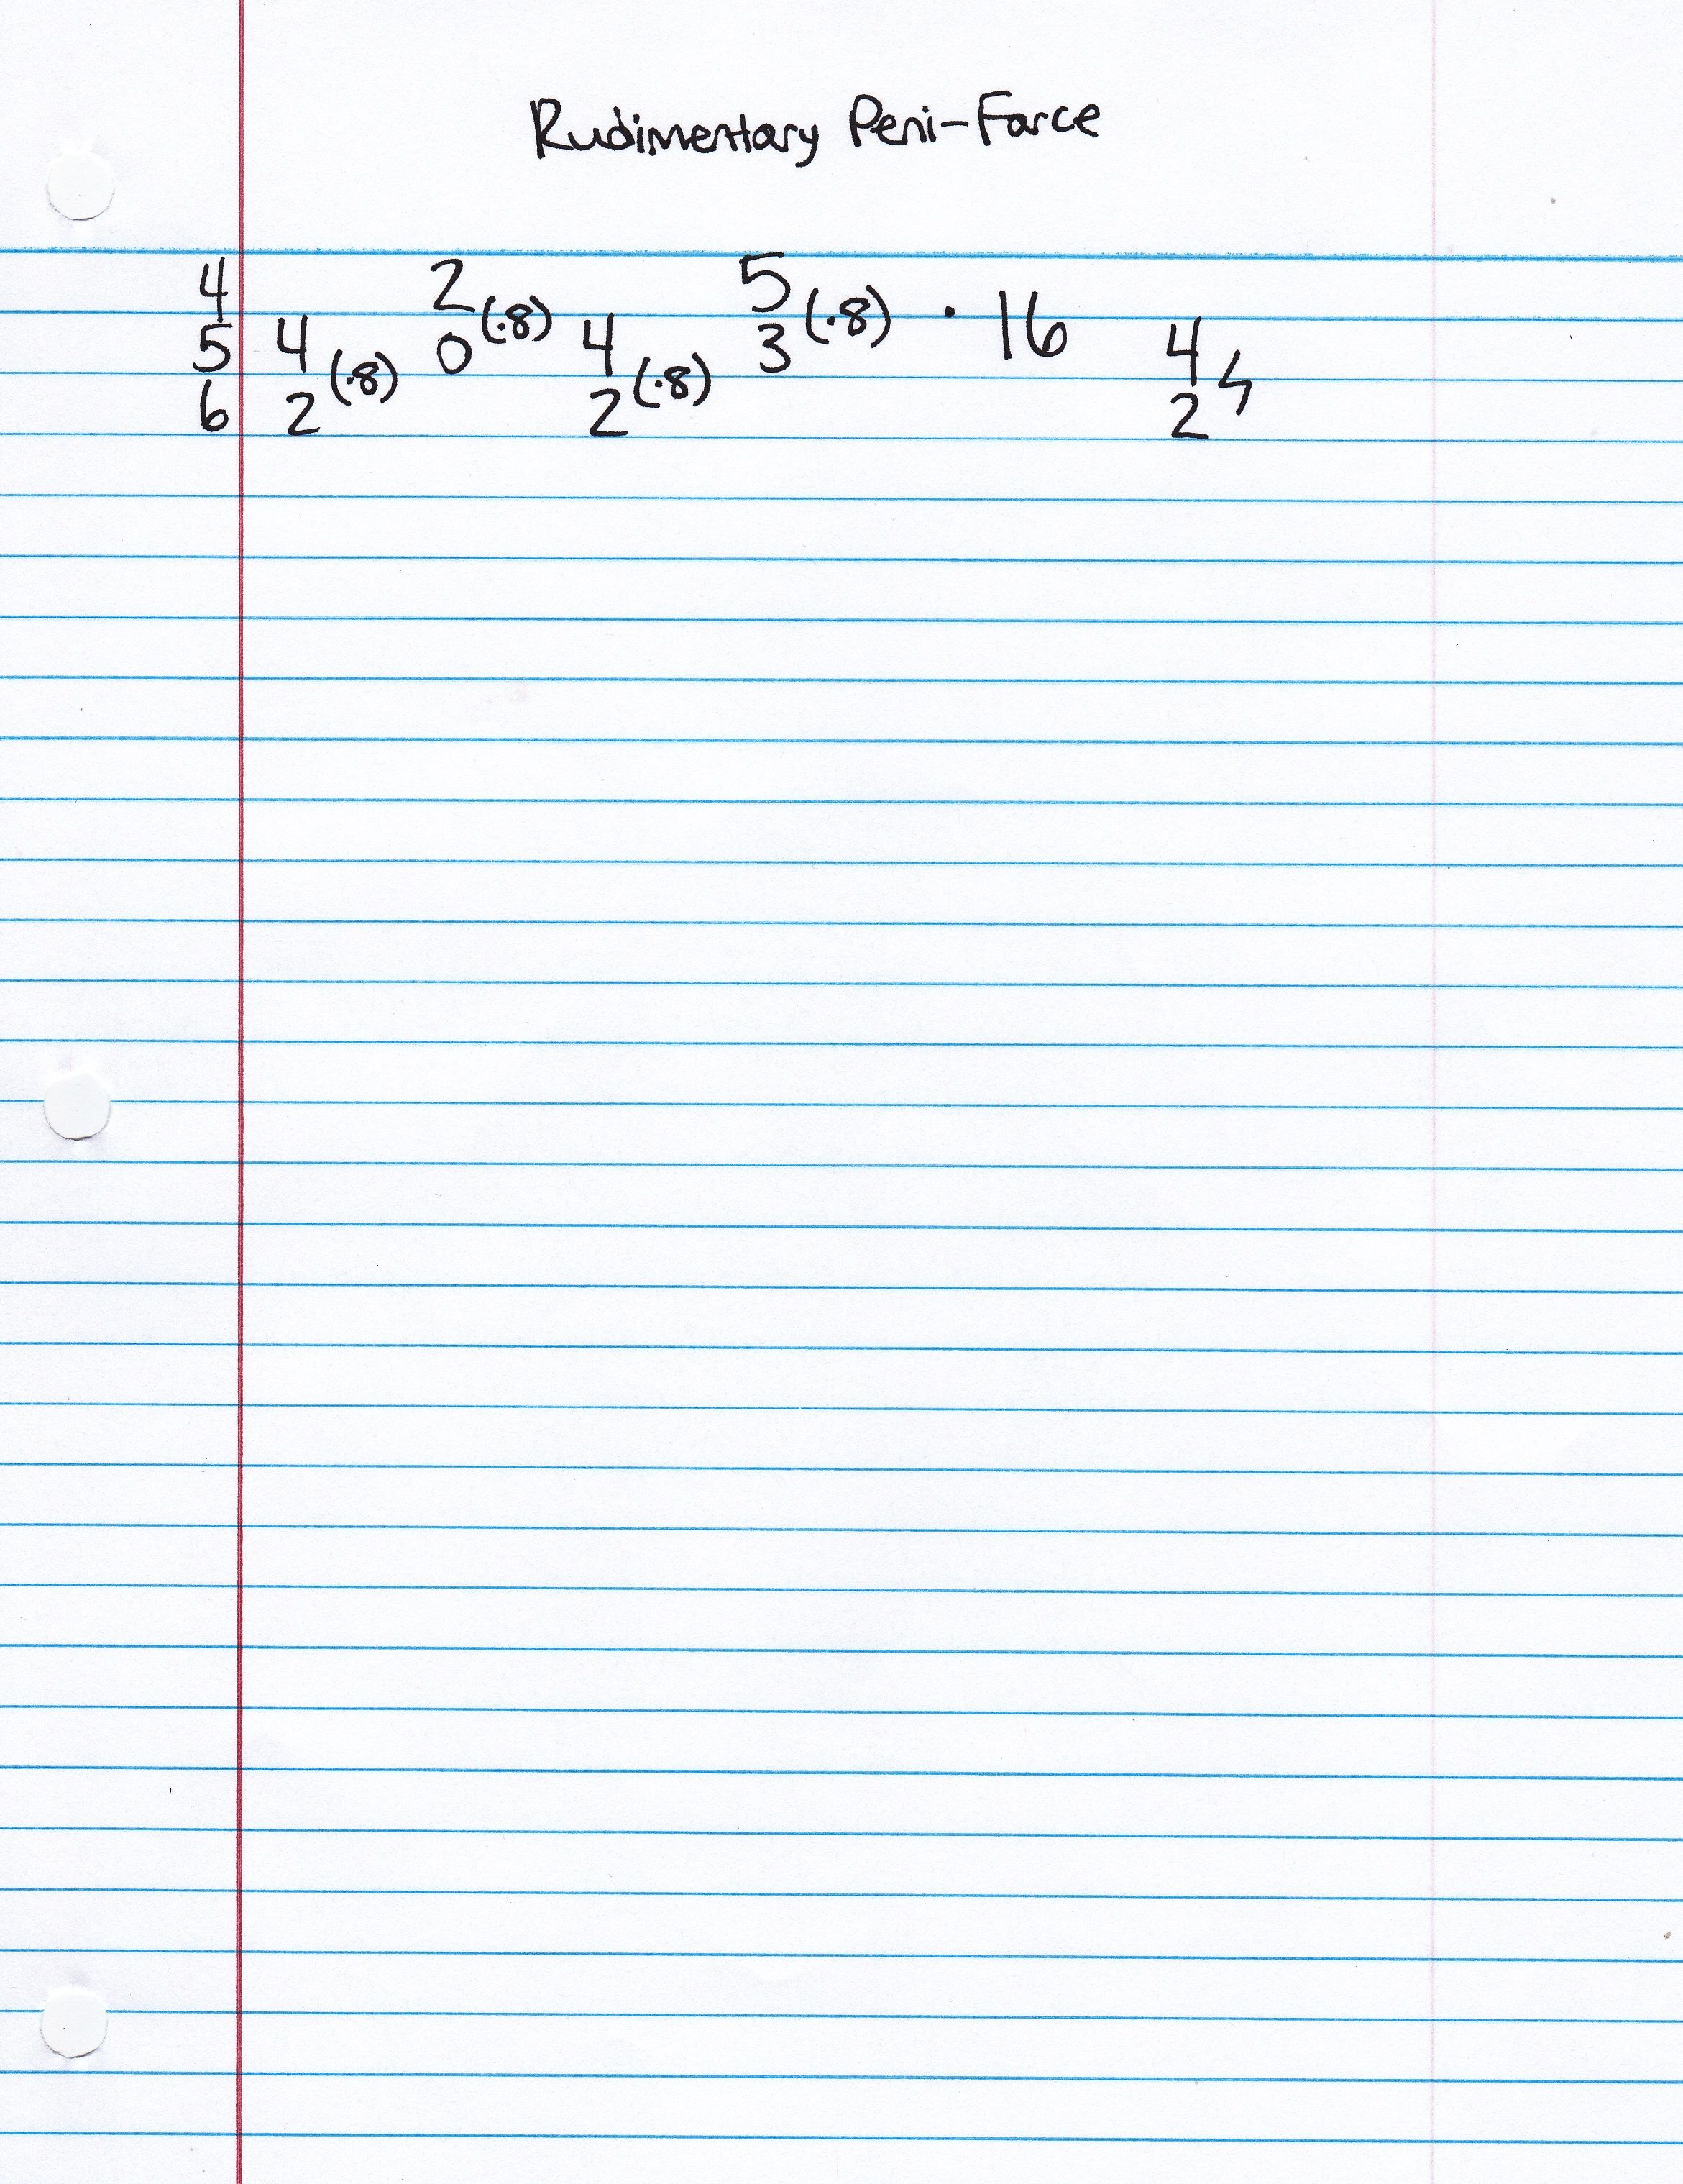 Rudimentary Peni-Farce
4 2 (.8) 5 (.8) · 16
5 4 (.8) 0 4 (.8) 3 4 ϟ
6 2 2 2